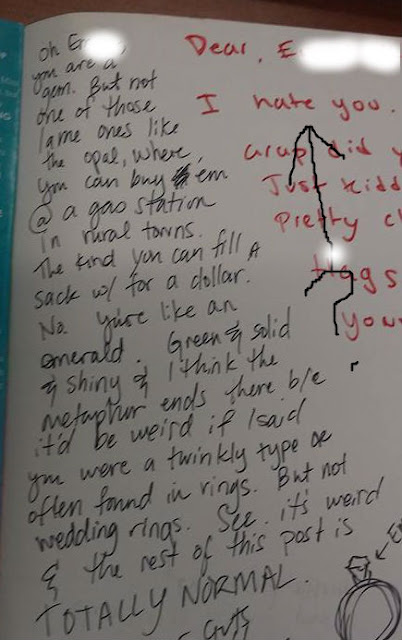 Oh E
you are a
gem. But not
one of those
lame ones like
the opal, where
you can buy em
@ a gas station
in rural towns.
The kind you can fill A
sack w/ for a dollar.
No. You're like an
emerald. Green & solid
& shiny & I think the
metaphor ends there b/c
it'd be weird if I said
you were a twinkly type or
often found in rings. But not
wedding rings. See. it's weird
& the rest of this post is
TOTALLY NORMAL.
GUTS
Dear, E
I hate you.
did y
Just kidd
Pretty cl
you